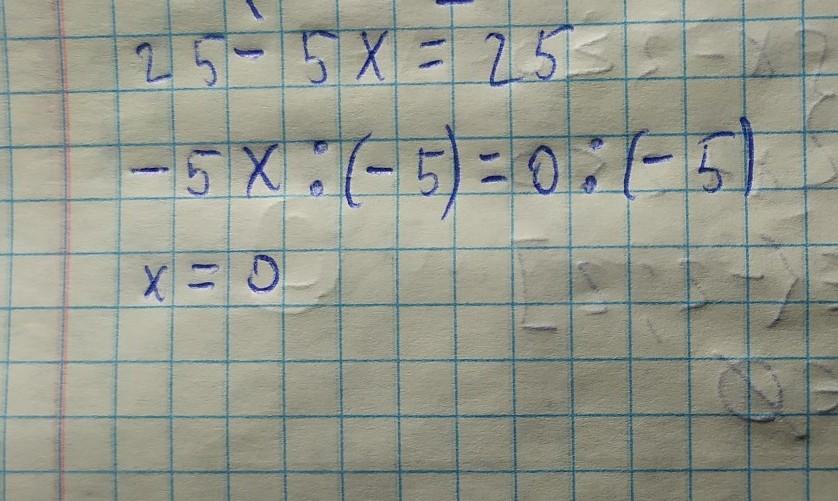 25 - 5x = 25
-5x : (-5) = 0 : (-5)
x = 0